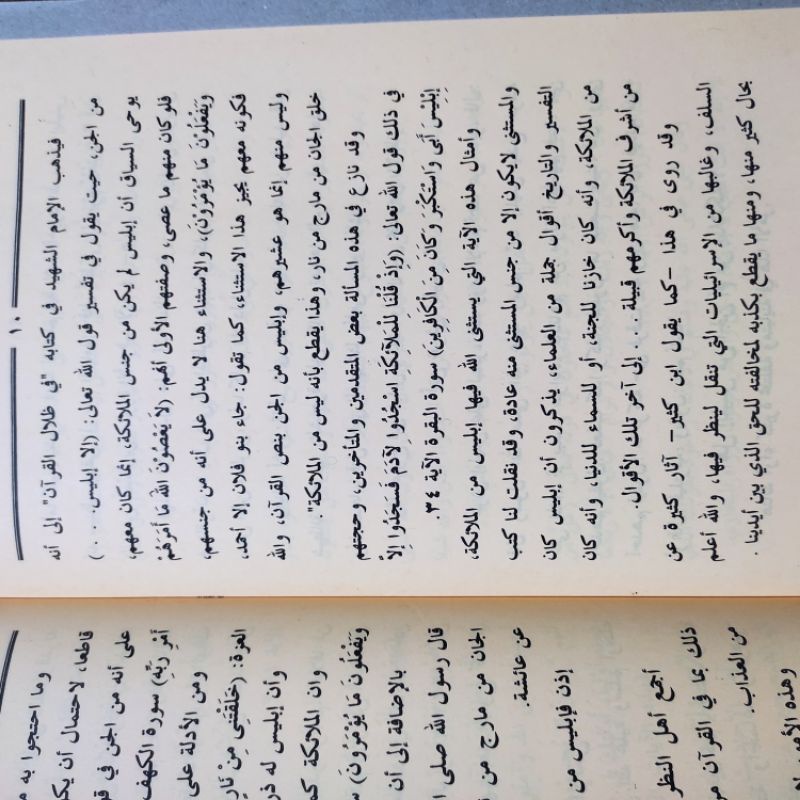 ١٠
فيذهب الإمام الشهيد في كتابه "في ظلال القرآن" إلى أنه
من الجن، حيث يقول في تفسير قول الله تعالى: (إلا إبليس. . .)
يوحى السياق أن إبليس لم يكن من جنس الملائكة، إنما كان معهم،
فلو كان منهم ما عصى، وصفتهم الأولى أنهم: (لاَ يَعْصُونَ اللهَ مَا أَمَرَهُمْ
وَيَفْعَلُونَ مَا يُؤْمَرُونَ)، والاستثناء هنا لا يدل على أنه من جنسهم،
فكونه معهم يجيز هذا الاستثناء، كما تقول: جاء بنو فلان إلا أحمد،
وليس منهم إنما هو عشيرهم، وإبليس من الجن بنص القرآن، والله
خلق الجان من مارج من نار، وهذا يقطع بأنه ليس من الملائكة".
وقد نازع في هذه المسألة بعض المتقدمين والمتأخرين، وحجتهم
في ذلك قول الله تعالى: (وَإِذْ قُلْنَا لِلْمَلائِكَةِ اسْجُدُوا لآدَمَ فَسَجَدُوا إِلاَّ
إِبْلِيسَ أَبَى وَاسْتَكْبَرَ وَكَانَ مِنَ الْكَافِرِينَ) سورة البقرة الآية ٣٤.
وأمثال هذه الآية التي يستثنى الله فيها إبليس من الملائكة،
والمستثنى لا يكون إلا من جنس المستثنى منه عادة، وقد نقلت لنا كتب
التفسير والتاريخ أقوال جملة من العلماء، يذكرون أن إبليس كان
من الملائكة، وأنه كان خازنا للجنة، أو للسماء للدنيا، وأنه كان
من أشرف الملائكة وأكرمهم قبيلة . . . إلى آخر تلك الأقوال.
وقد روى في هذا -كما يقول ابن كثير- آثار كثيرة عن
السلف، وغالبها من الإسرائيليات التي تنقل لينظر فيها، والله أعلم
بحال كثير منها، ومنها ما يقطع بكذبه لمخالفته للحق الذي بين أيدينا.
وما احتجوا به
قاطعا، لاحتمال أن
على أنه من الجن في
أَمْرِ رَبِّهِ) سورة الكهف
ومن الأدلة على
العزة: (خَلَقْتَنِي مِنْ نَارٍ
وأن إبليس له
وان الملائكة
وَيَفْعَلُونَ مَا يُؤْمَرُونَ)
بالإضافة إلى أن
قال رسول الله صلى
الجان من مارج من
عن عائشة.
إذن فإبليس من
أجمع أهل النظر
ذلك بما في القرآن
من العذاب.
وهذه